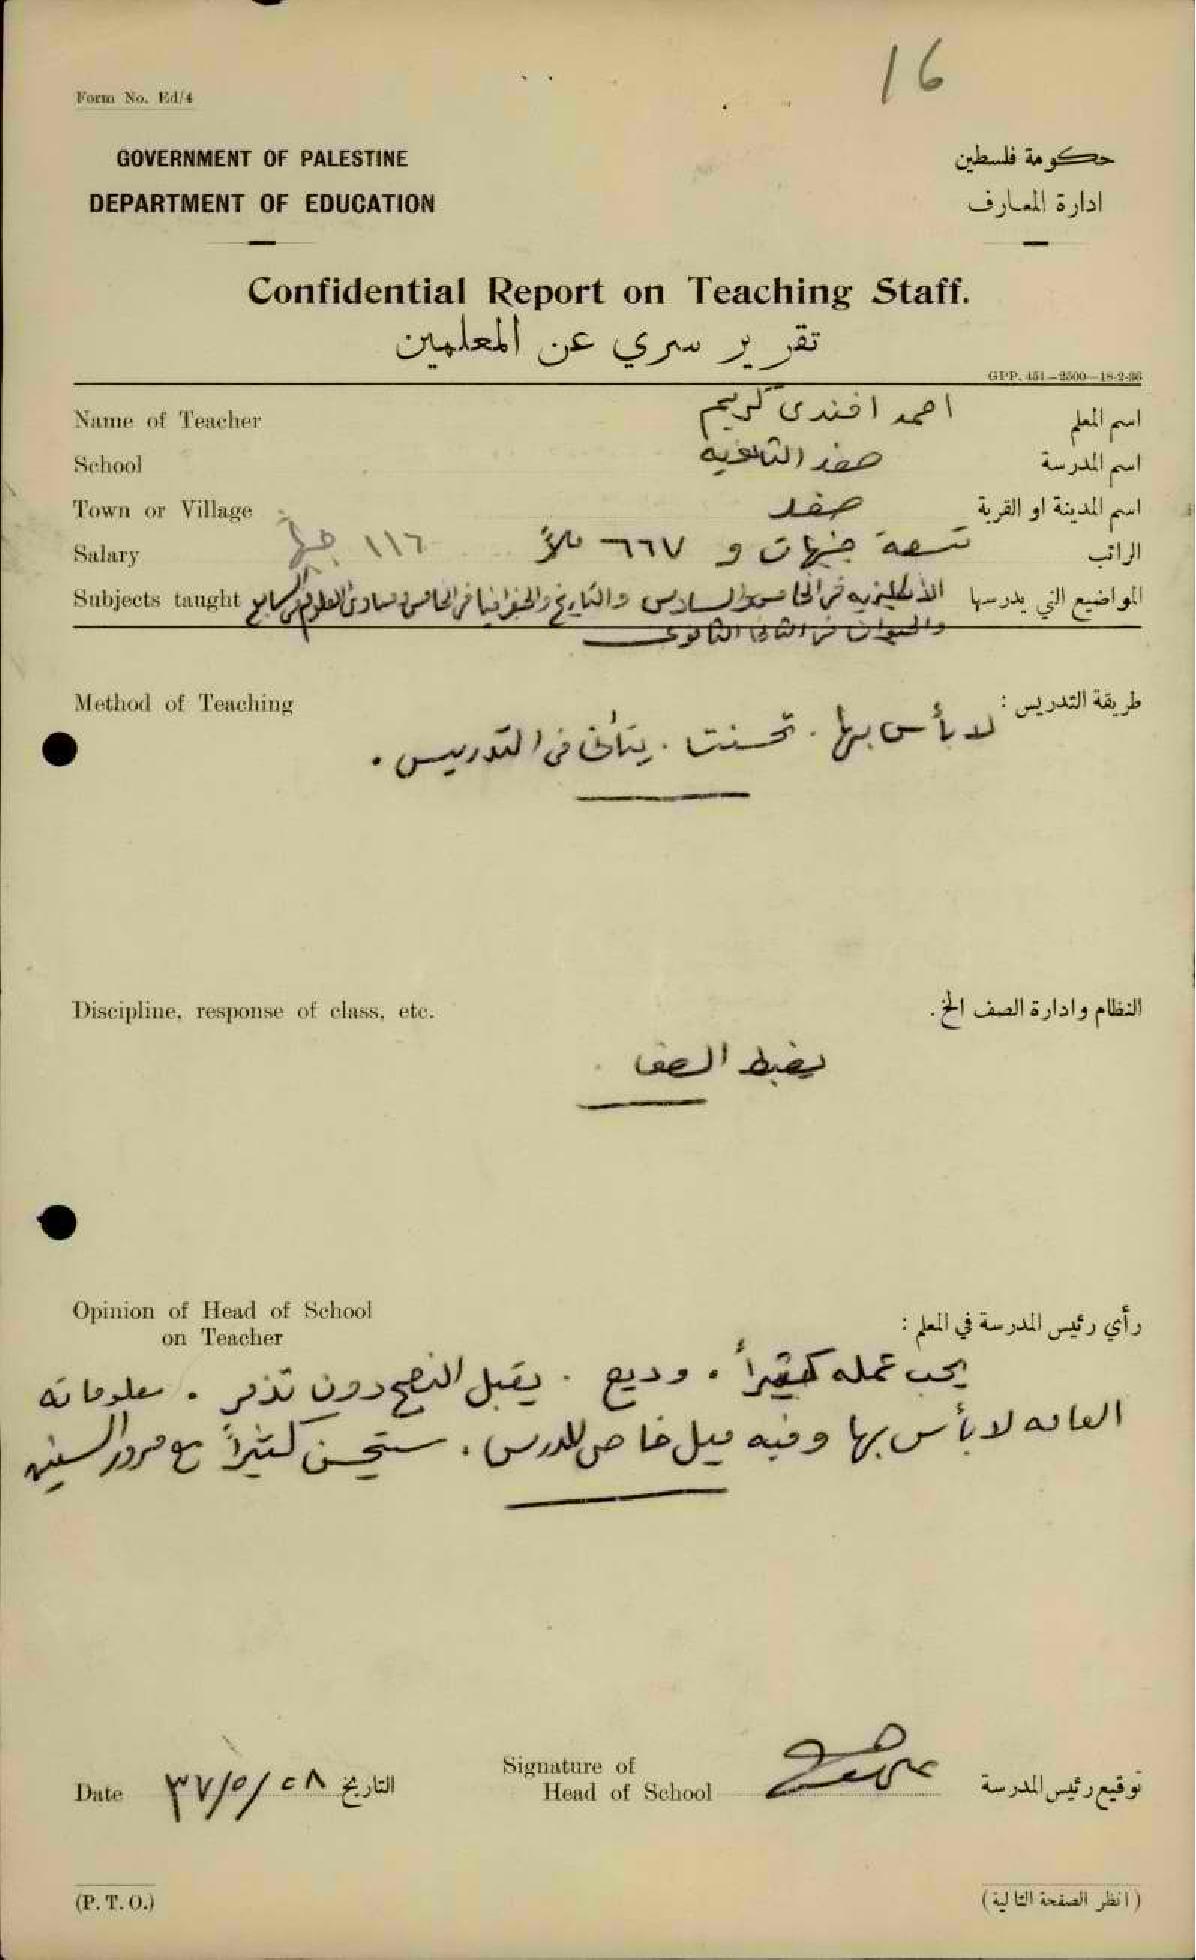 16
Form No. Ed/4
GOVERNMENT OF PALESTINE حكومة فلسطين
DEPARTMENT OF EDUCATION ادارة المعارف
Confidential Report on Teaching Staff.
تقرير سري عن المعلمين
GPP. 451—2500—18-2-36
Name of Teacher احمد افندى كريم اسم المعلم
School صفد الثانويه اسم المدرسة
Town or Village صفد اسم المدينة او القرية
Salary تسعة جنيهات و ٦٦٧ ملاً ١١٦ جنيهاً الراتب
Subjects taught الانكليزيه في الخامس والسادس والتاريخ والجغرافيا في الخامس ومبادئ العلوم في السابع المواضيع التي يدرسها
والحيوان في الثاني الثانوى
Method of Teaching طريقة التدريس :
لا بأس بها . تحسنت . يتأنى في التدريس .
Discipline, response of class, etc. النظام وادارة الصف الخ.
يضبط الصف .
Opinion of Head of School
on Teacher رأي رئيس المدرسة في المعلم :
يحب عمله كثيراً . وديع . يقبل النصح دون تذمر . معلوماته
العامه لا بأس بها وفيه ميل خاص للدرس . ستتحسن كثيراً مع مرور السنين
Signature of
Head of School توقيع رئيس المدرسة
Date ٢٨/٥/٣٧ التاريخ
(P. T. O.) (انظر الصفحة التالية)